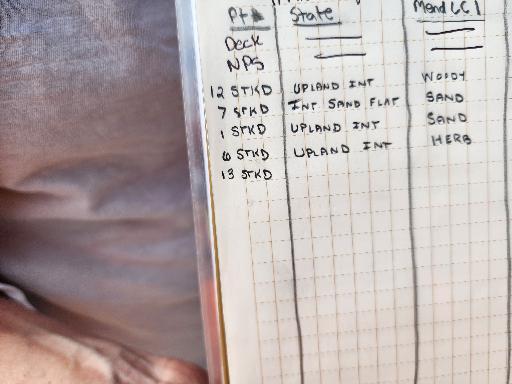 Pt State Mend LC 1
Deck
NPS
12 STKD UPLAND INT WOODY
7 STKD INT SAND FLAT SAND
1 STKD UPLAND INT SAND
6 STKD UPLAND INT HERB
13 STKD